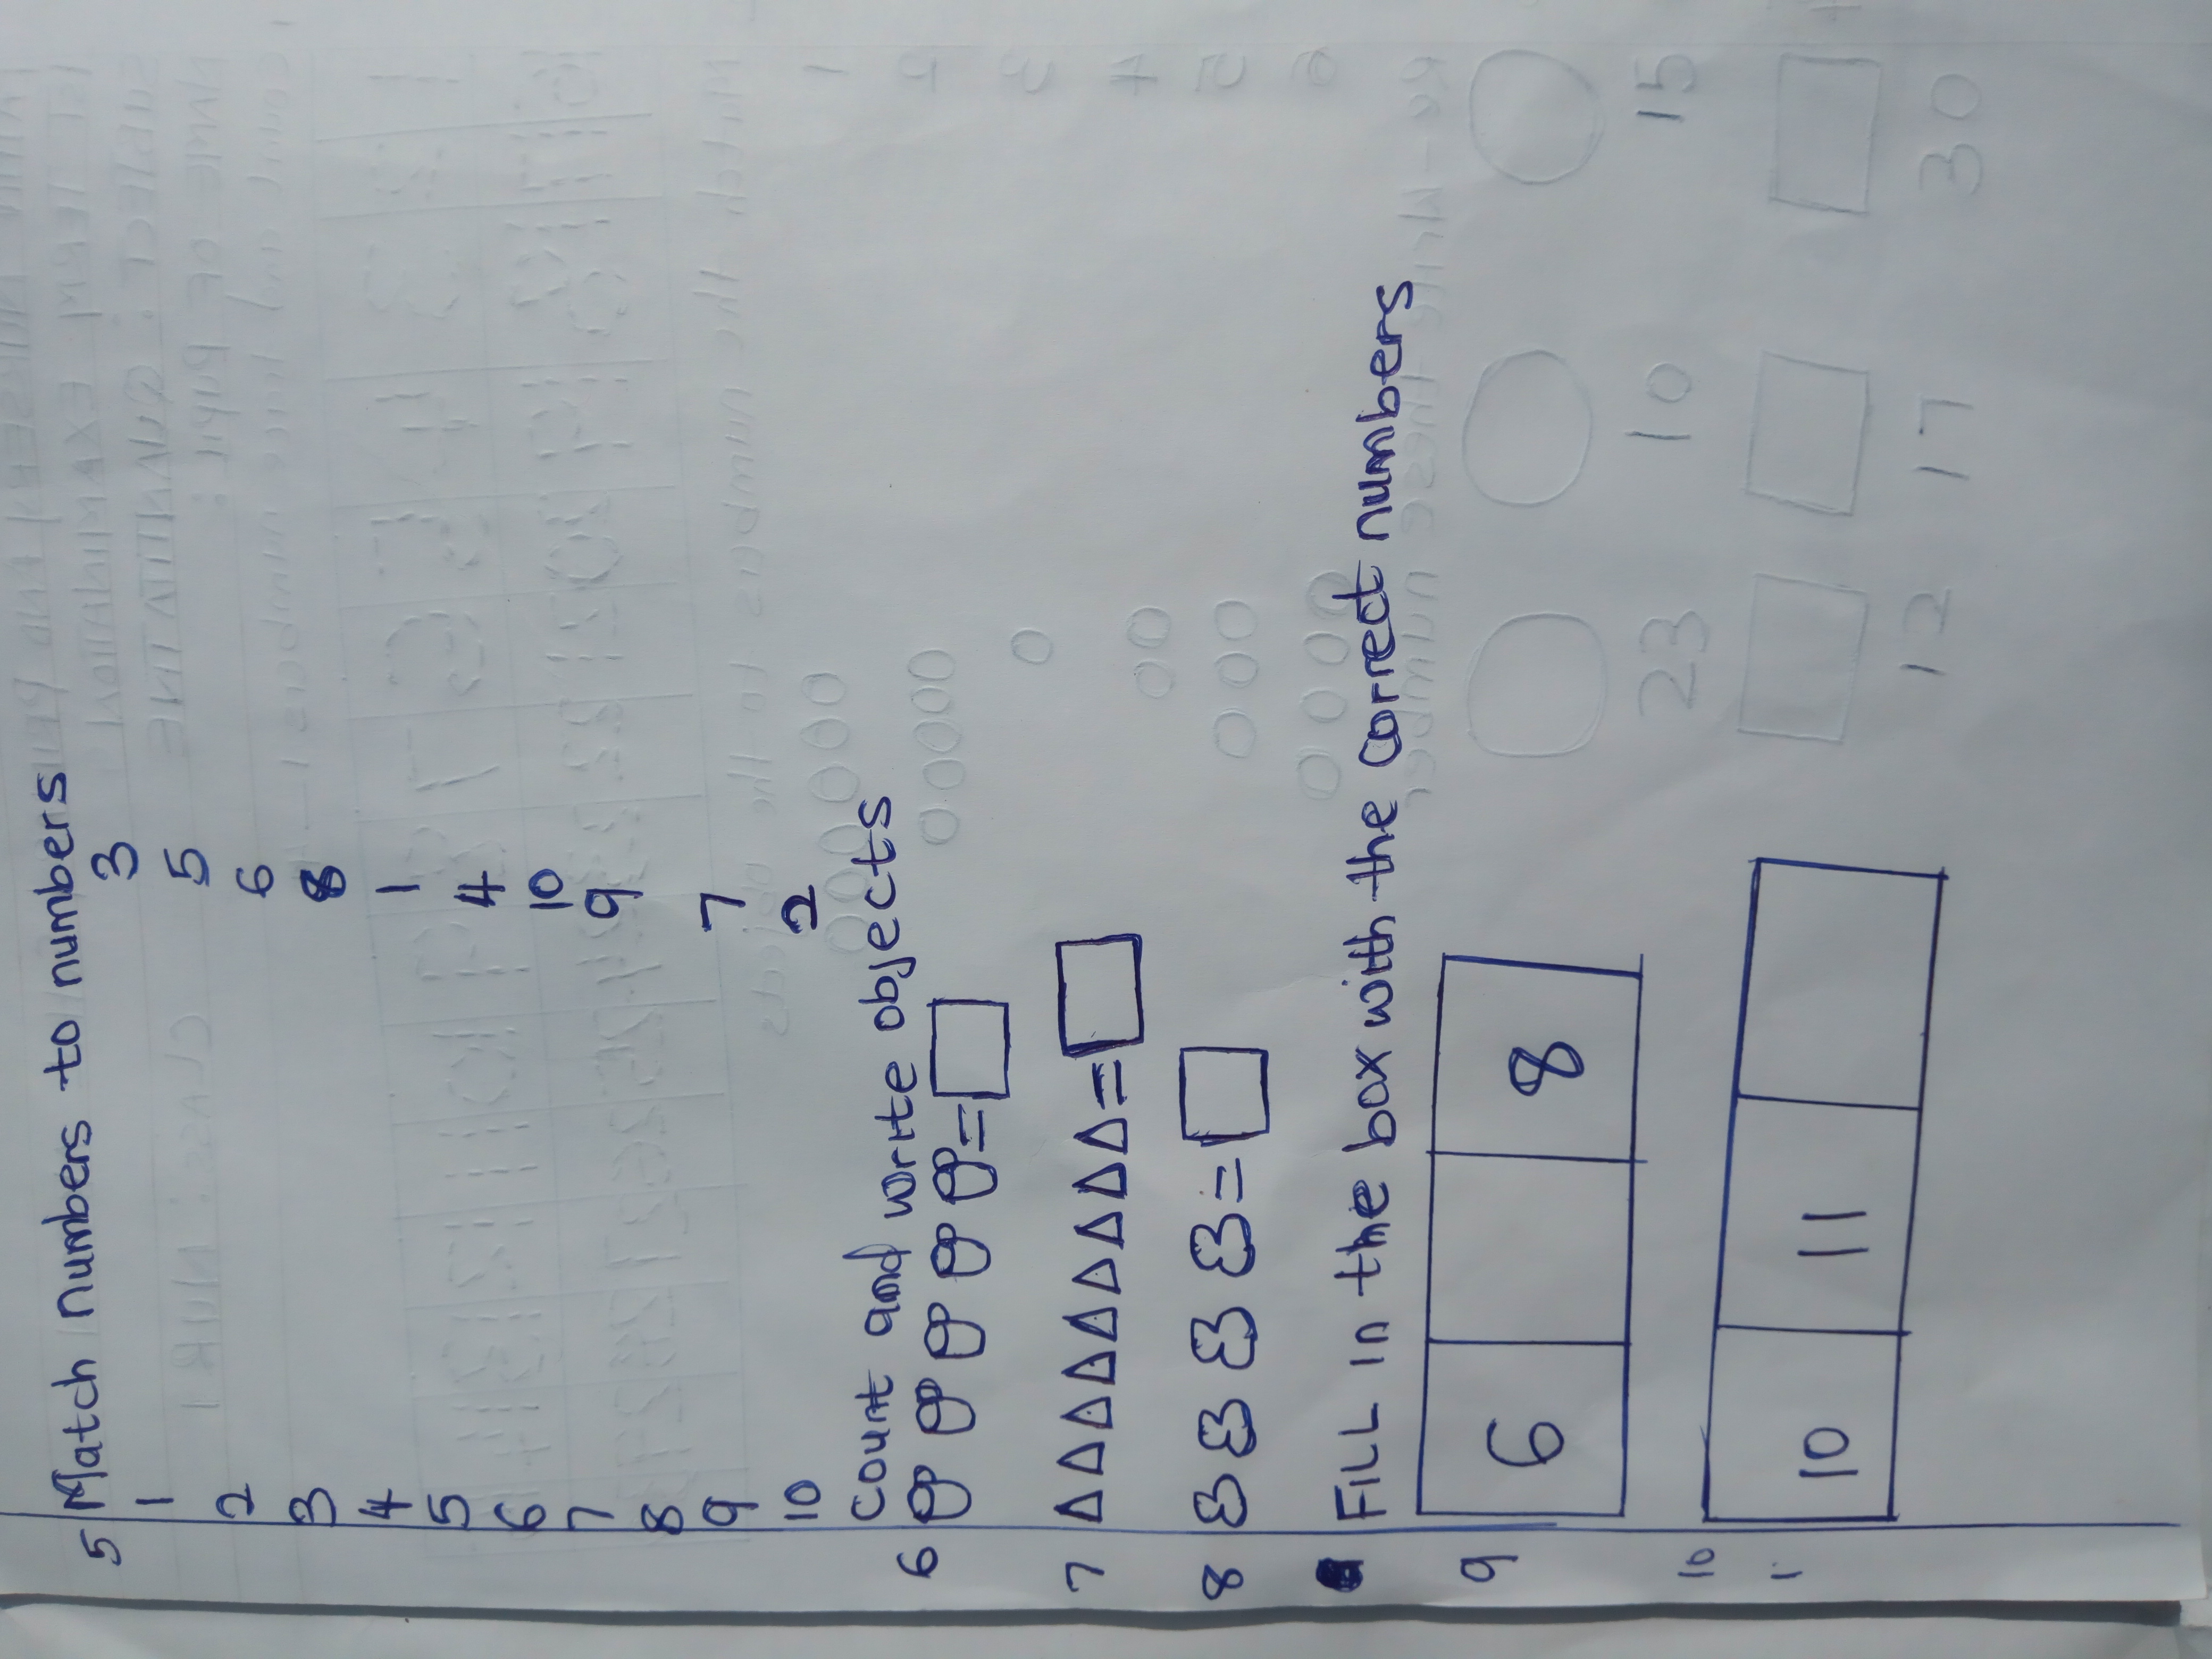 5 Match numbers to numbers
1 3
2 5
3 6
4 8
5 1
6 4
7 10
8 9
9 7
10 2
Count and write objects
6 =
7 =
8 =
Fill in the box with the correct numbers
9 6 8
10 10 11
1